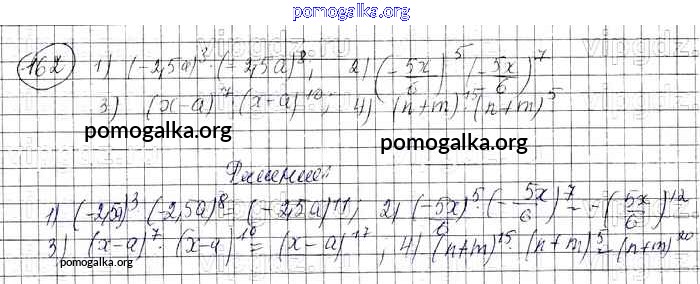 pomogalka.org
162 1) (-2,5a)³ · (-2,5a)⁸; 2) (-5x/6)⁵ (-5x/6)⁷
3) (x-a)⁷ (x-a)¹⁰; 4) (n+m)¹⁵ (n+m)⁵
pomogalka.org
pomogalka.org
Решение:
1) (-2,5a)³ (-2,5a)⁸ = (-2,5a)11; 2) (-5x/6)⁵ · (-5x/6)⁷ = -(5x/6)¹²
3) (x-a)⁷ · (x-a)¹⁰ = (x-a)¹⁷; 4) (n+m)¹⁵ · (n+m)⁵ = (n+m)²⁰
pomogalka.org
pomogalka.org